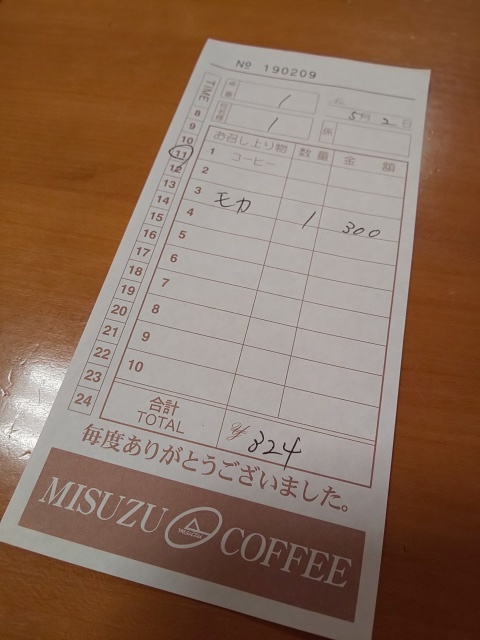 № 190209
TIME
8
9
10
11
12
13
14
15
16
17
18
19
20
21
22
23
24
1
1
5月2日
係
お召し上り物 数量 金額
1 コーヒー
2
3 モカ 1 300
4
5
6
7
8
9
10
合計
TOTAL
¥ 324
毎度ありがとうございました。
MISUZU COFFEE